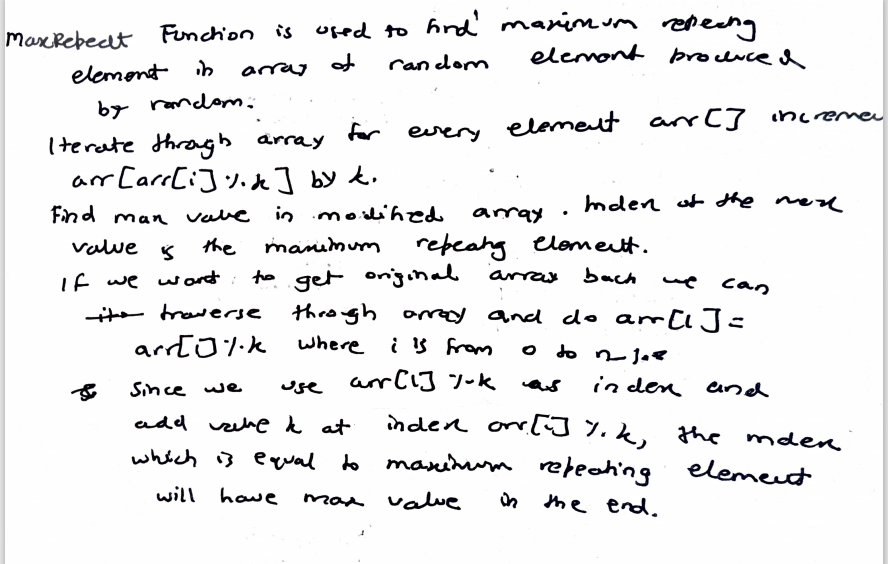 MaxRepeat Function is used to find maximum repeating
element in array of random element produced
by random.
Iterate through array for every element arr[] increme
arr[arr[i] %. k] by k.
Find max value in modified array. Index of the max
value is the maximum repeating element.
If we want to get original array back we can
traverse through array and do arr[i] =
arr[i] %. k where i is from 0 to n-1
Since we use arr[i] %. k as index and
add value k at index arr[i] %. k, the index
which is equal to maximum repeating element
will have max value in the end.